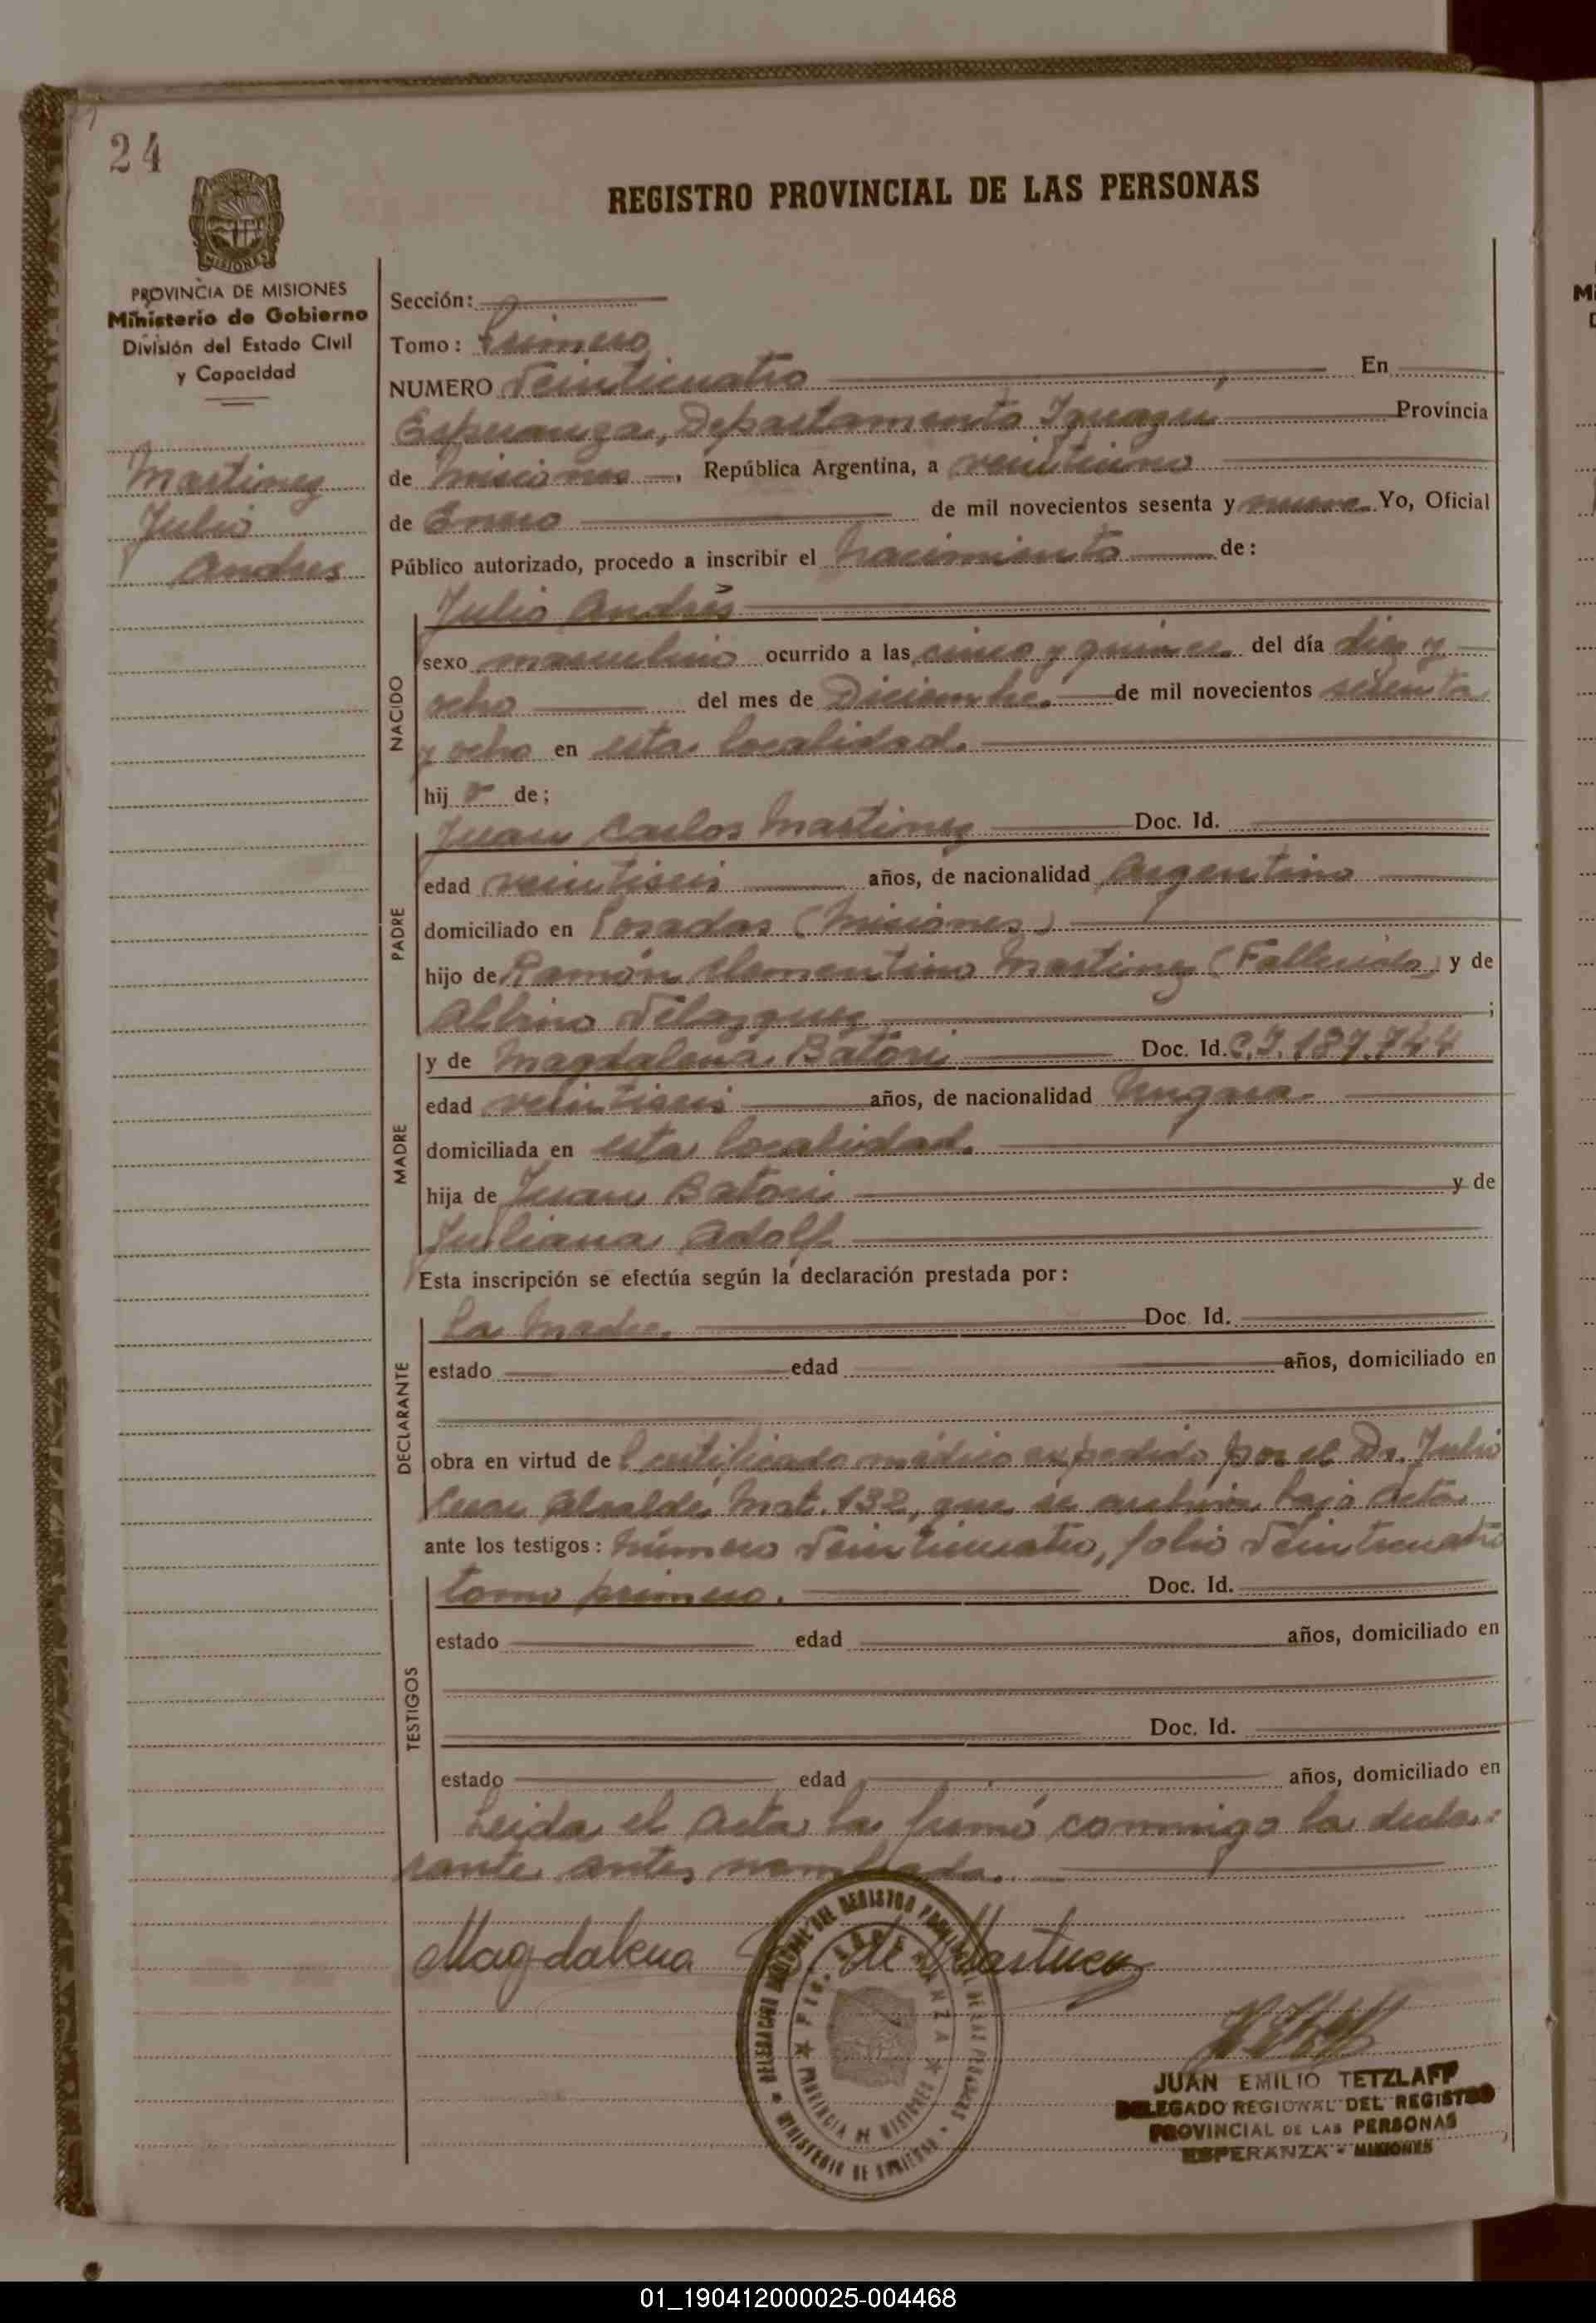 24
REGISTRO PROVINCIAL DE LAS PERSONAS
MISIONES
PROVINCIA DE MISIONES
Ministerio de Gobierno
División del Estado Civil
y Capacidad
Martinez
Julio
Andres
Sección:
Tomo: Primero
NUMERO Veinticuatro En
Esperanza, Departamento Iguazú Provincia
de Misiones, República Argentina, a veintiuno
de Enero de mil novecientos sesenta y nueve Yo, Oficial
Público autorizado, procedo a inscribir el nacimiento de:
Julio Andrés
NACIDO
sexo masculino ocurrido a las cinco y quince del día diez y
ocho del mes de Diciembre de mil novecientos sesenta
y ocho en esta localidad.
hijo de;
PADRE
Juan Carlos Martinez Doc. Id.
edad veintiseis años, de nacionalidad Argentino
domiciliado en Posadas (Misiones)
hijo de Ramón Clementino Martinez (Fallecido) y de
Albino Velazquez;
MADRE
y de Magdalena Batori Doc. Id. C.I. 187.744
edad veintiseis años, de nacionalidad Ungara
domiciliada en esta localidad.
hija de Juan Batori y de
Juliana Adolf
Esta inscripción se efectúa según la declaración prestada por:
DECLARANTE
La Madre. Doc. Id.
estado edad años, domiciliado en
obra en virtud de Certificado médico expedido por el Dr. Julio
Cesar Alcalde, Mat. 132, que se archiva bajo Acta
ante los testigos: Número Veinticuatro, folio Veinticuatro
TESTIGOS
tomo primero. Doc. Id.
estado edad años, domiciliado en
Doc. Id.
estado edad años, domiciliado en
Leida el Acta la firmó conmigo la decla-
rante antes nombrada.
Magdalena B. de Martinez
DELEGACIÓN DEL REGISTRO PROVINCIAL DE LAS PERSONAS
MINISTERIO DE GOBIERNO
PTO. ESPERANZA
PROVINCIA DE MISIONES
JUAN EMILIO TETZLAFF
DELEGADO REGIONAL DEL REGISTRO
PROVINCIAL DE LAS PERSONAS
ESPERANZA - MISIONES
01_190412000025-004468